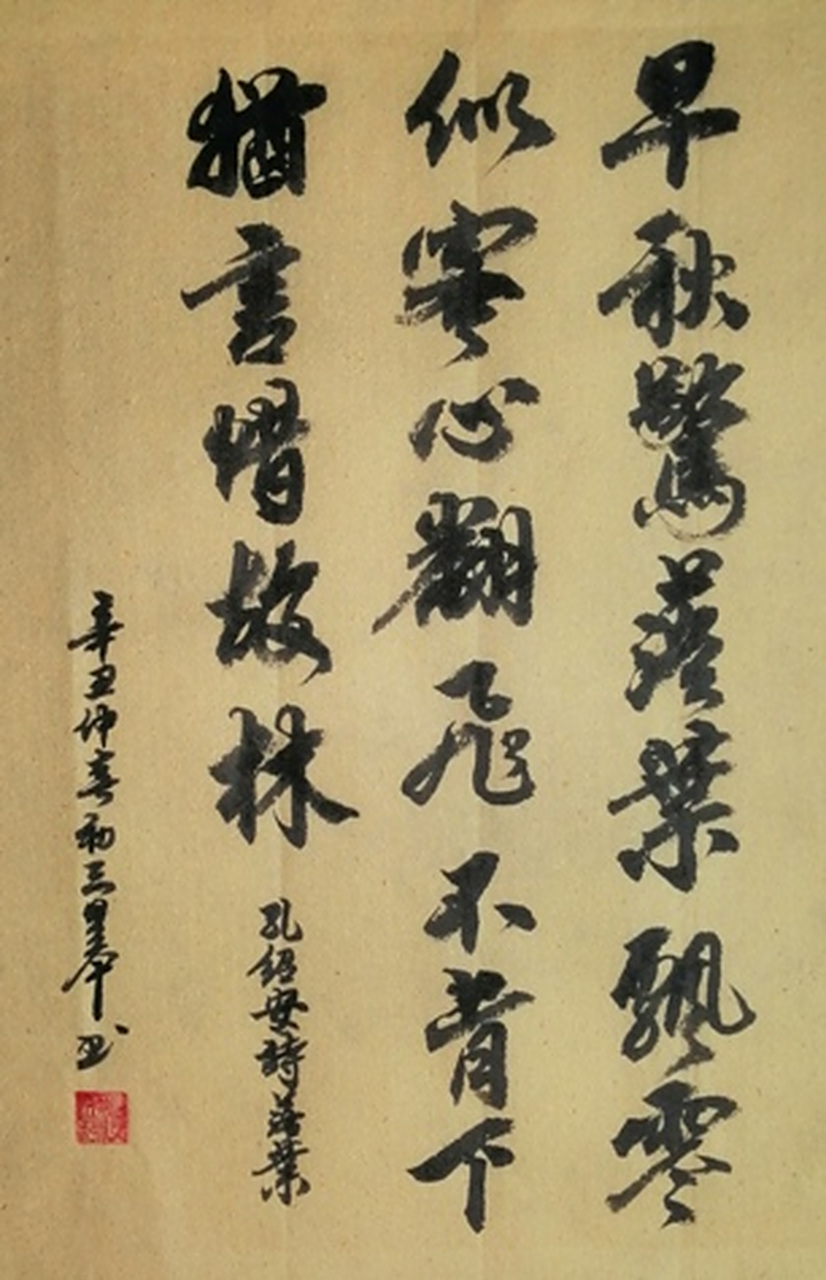 早秋驚落葉飄零
似客心翻飛不肯下
猶言惜故林
孔紹安詩落葉
辛丑仲春初三
书